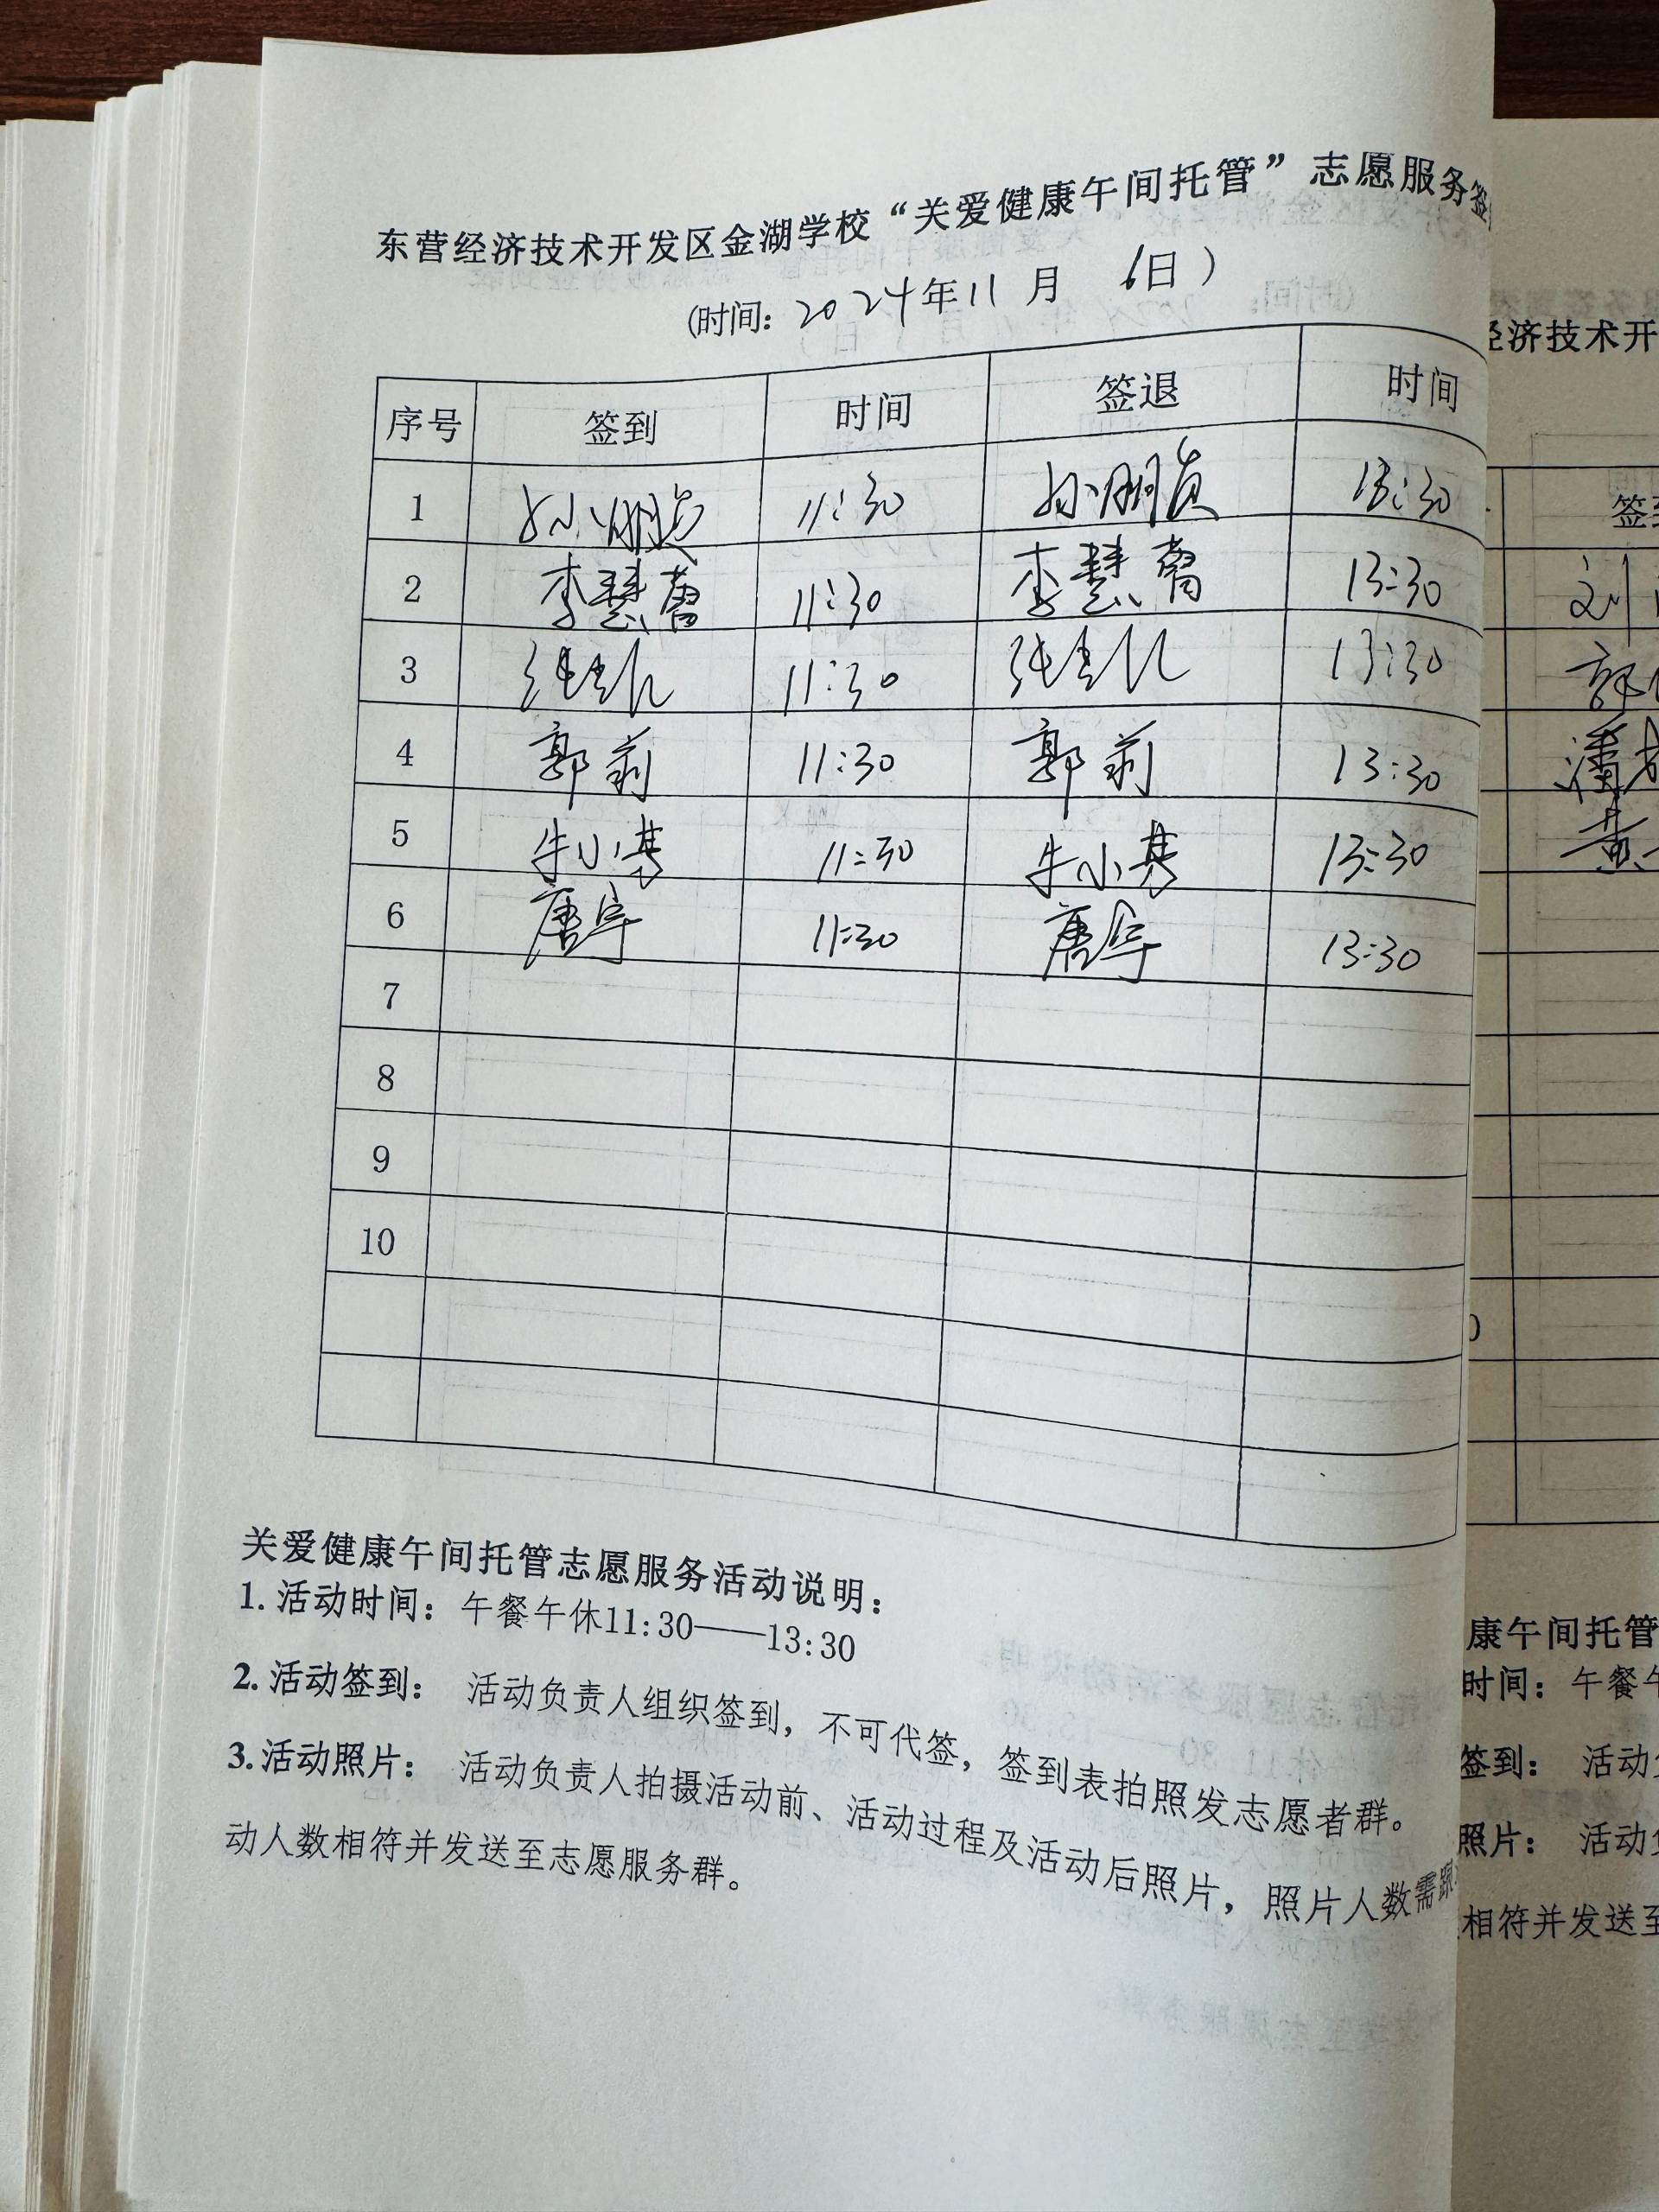 东营经济技术开发区金湖学校“关爱健康午间托管”志愿服务签
(时间: 2024年11月 6日)
序号 签到 时间 签退 时间
1 孙朋贞 11:30 孙朋贞 13:30
2 李慧馨 11:30 李慧馨 13:30
3 张 11:30 张 13:30
4 郭莉 11:30 郭莉 13:30
5 牛小莓 11:30 牛小莓 13:30
6 唐宇 11:30 唐宇 13:30
7
8
9
10
关爱健康午间托管志愿服务活动说明:
1. 活动时间: 午餐午休11:30——13:30
2. 活动签到: 活动负责人组织签到, 不可代签, 签到表拍照发志愿者群。
3. 活动照片: 活动负责人拍摄活动前、活动过程及活动后照片, 照片人数需跟
动人数相符并发送至志愿服务群。
经济技术开
签到
刘
郭
潘
黄
0
康午间托管
时间: 午餐午
签到: 活动
照片: 活动
相符并发送至